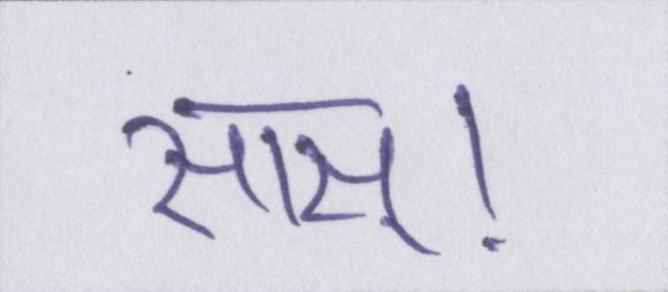 सास्!